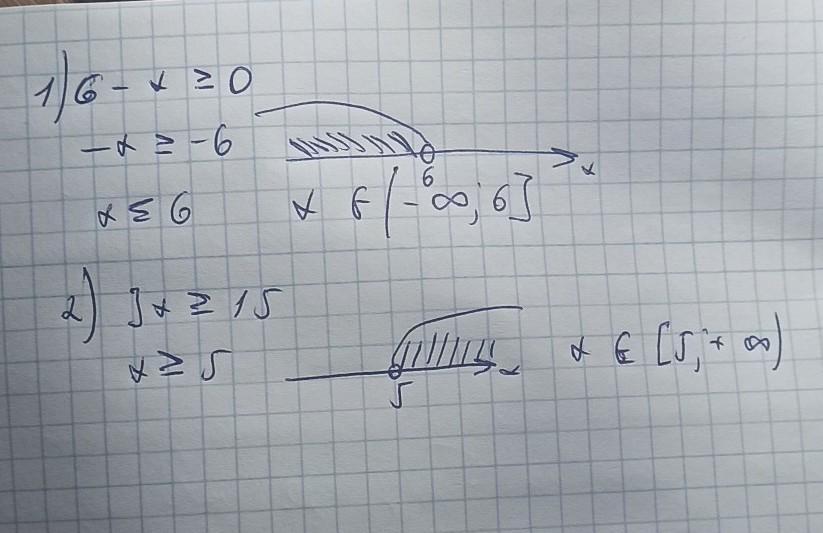 1) 6 - x ≥ 0
-x ≥ -6
x ≤ 6
6
x
x ∈ (-∞; 6]
2) 3x ≥ 15
x ≥ 5
5
x
x ∈ [5; +∞)